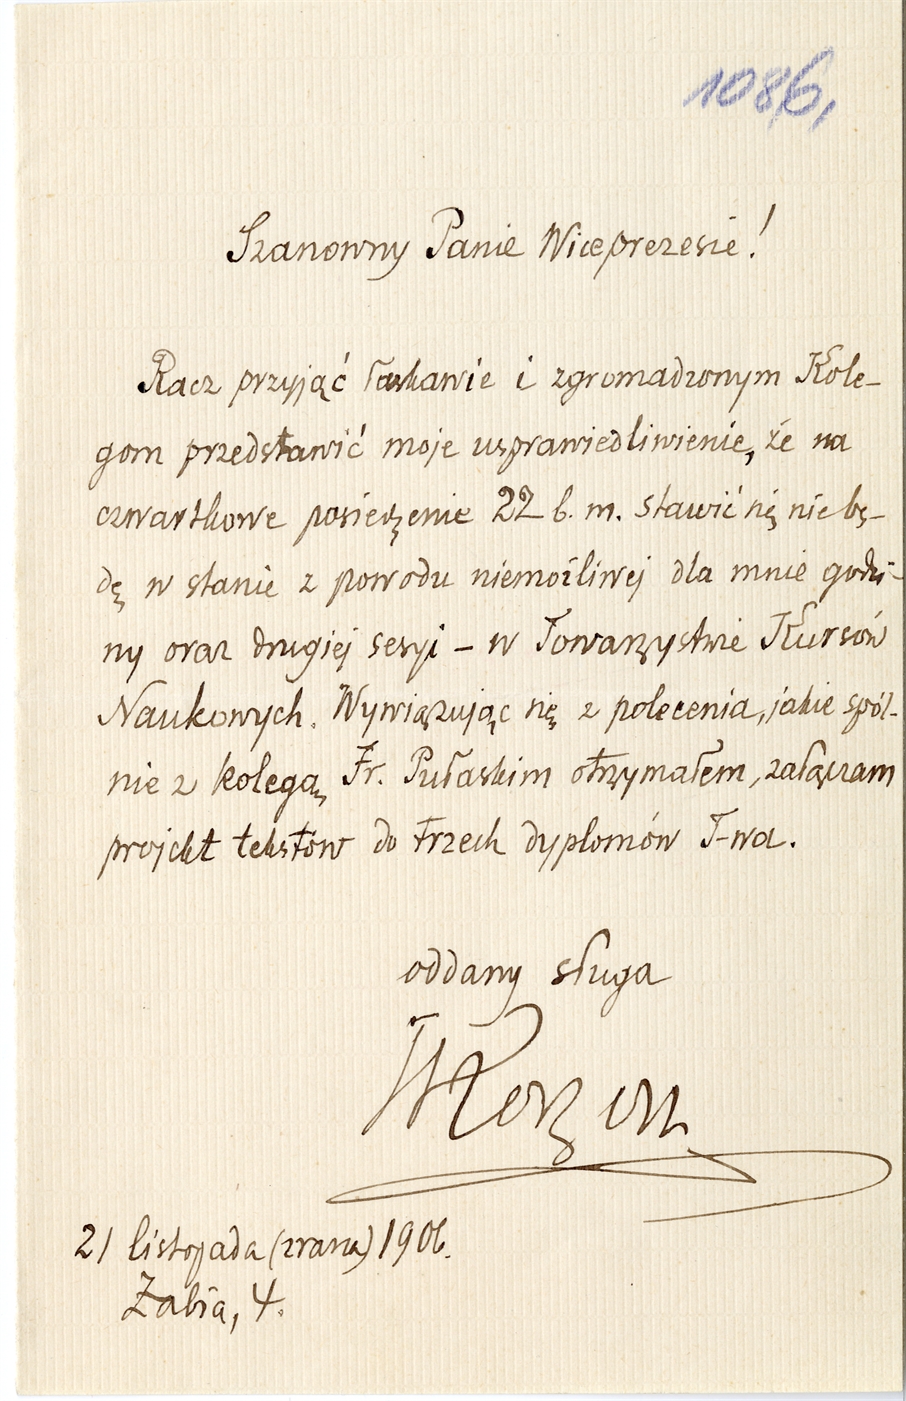 1086,
Szanowny Panie Wiceprezesie!
Racz przyjąć łaskawie i zgromadzonym Kole-
gom przedstawić moje usprawiedliwienie, że na
czwartkowe posiedzenie 22 b. m. stawić się nie bę-
dę w stanie z powodu niemożliwej dla mnie godzi-
ny oraz drugiej sesyi – w Towarzystwie Kursów
Naukowych. Wywiązując się z polecenia, jakie spól-
nie z kolegą Fr. Pułaskim otrzymałem, załączam
projekt tekstów do trzech dyplomów T-wa.
oddany sługa
TKorzon
21 listopada (zrana) 1906.
Żabia, 4.